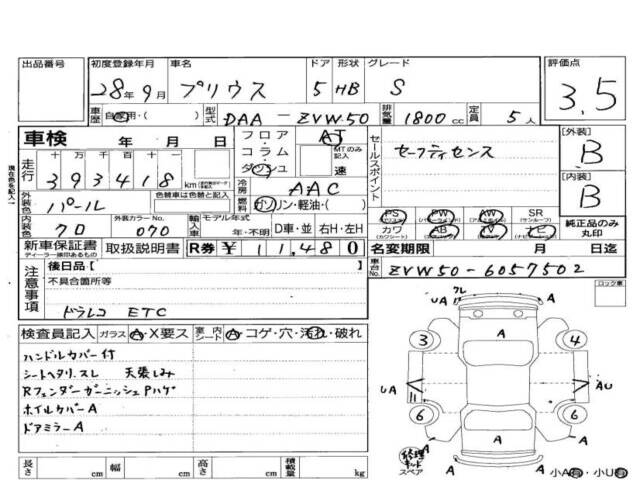 出品番号 初度登録年月 車名 ドア 形状 グレード 評価点
28年9月 プリウス 5 HB S 3.5
車歴 自家用・( ) 型式 DAA-ZVW50 排気量 1800cc 定員 5人
車検 年 月 日 フロア・コラム・ダッシュ AT MTのみ記入 速 セールスポイント セーフティセンス [外装] B
走行 十万 万 千 百 十 一 393418km 冷房 AAC [内装] B
外装色 パール 色替車は色替と記入 燃料 ガソリン・軽油・( )
内装色 クロ 外装カラーNo. 070 輸入車 モデル年式 年・不明 D車・並 右H・左H
PS PW AW SR
カワ AB TV ナビ 純正品のみ丸印
新車保証書 ディーラー捺印あるもの 取扱説明書 R券 ¥11,480 名変期限 月 日迄
注意事項 後日品・[ ] 車台No. ZVW50-6057502
不具合箇所等 ロック車
ドラレコ ETC
検査員記入 ガラス A・X要ス 室内シート A・コゲ・穴・汚れ・破れ
ハンドルカバー付
シートヘタリ.スレ 天張しみ
RフェンダーガーニッシュPハゲ
ホイルカバーA
ドアミラーA
UA フレ A
3 A 4
UA A AU
6 A 6
A A A A
修理キット スペア
小A有・小U有
長さ cm 幅 cm 高さ cm 積載量 kg